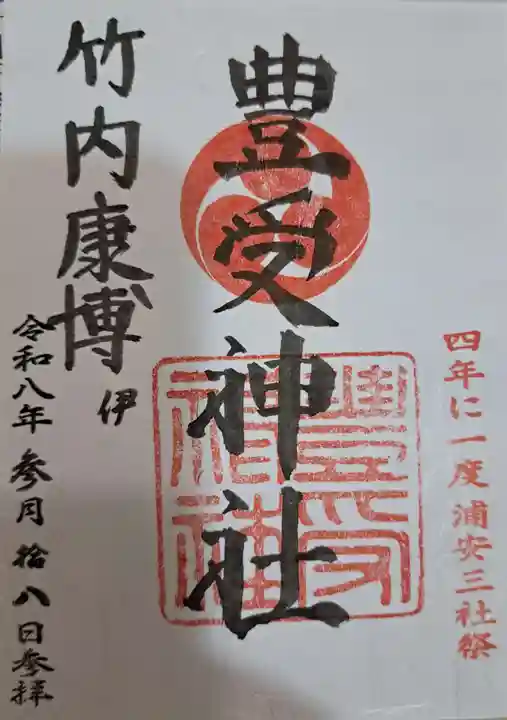 四年に一度浦安三社祭
豊受神社
豊受神社
竹内康博
伊
令和八年参月拾八日参拝